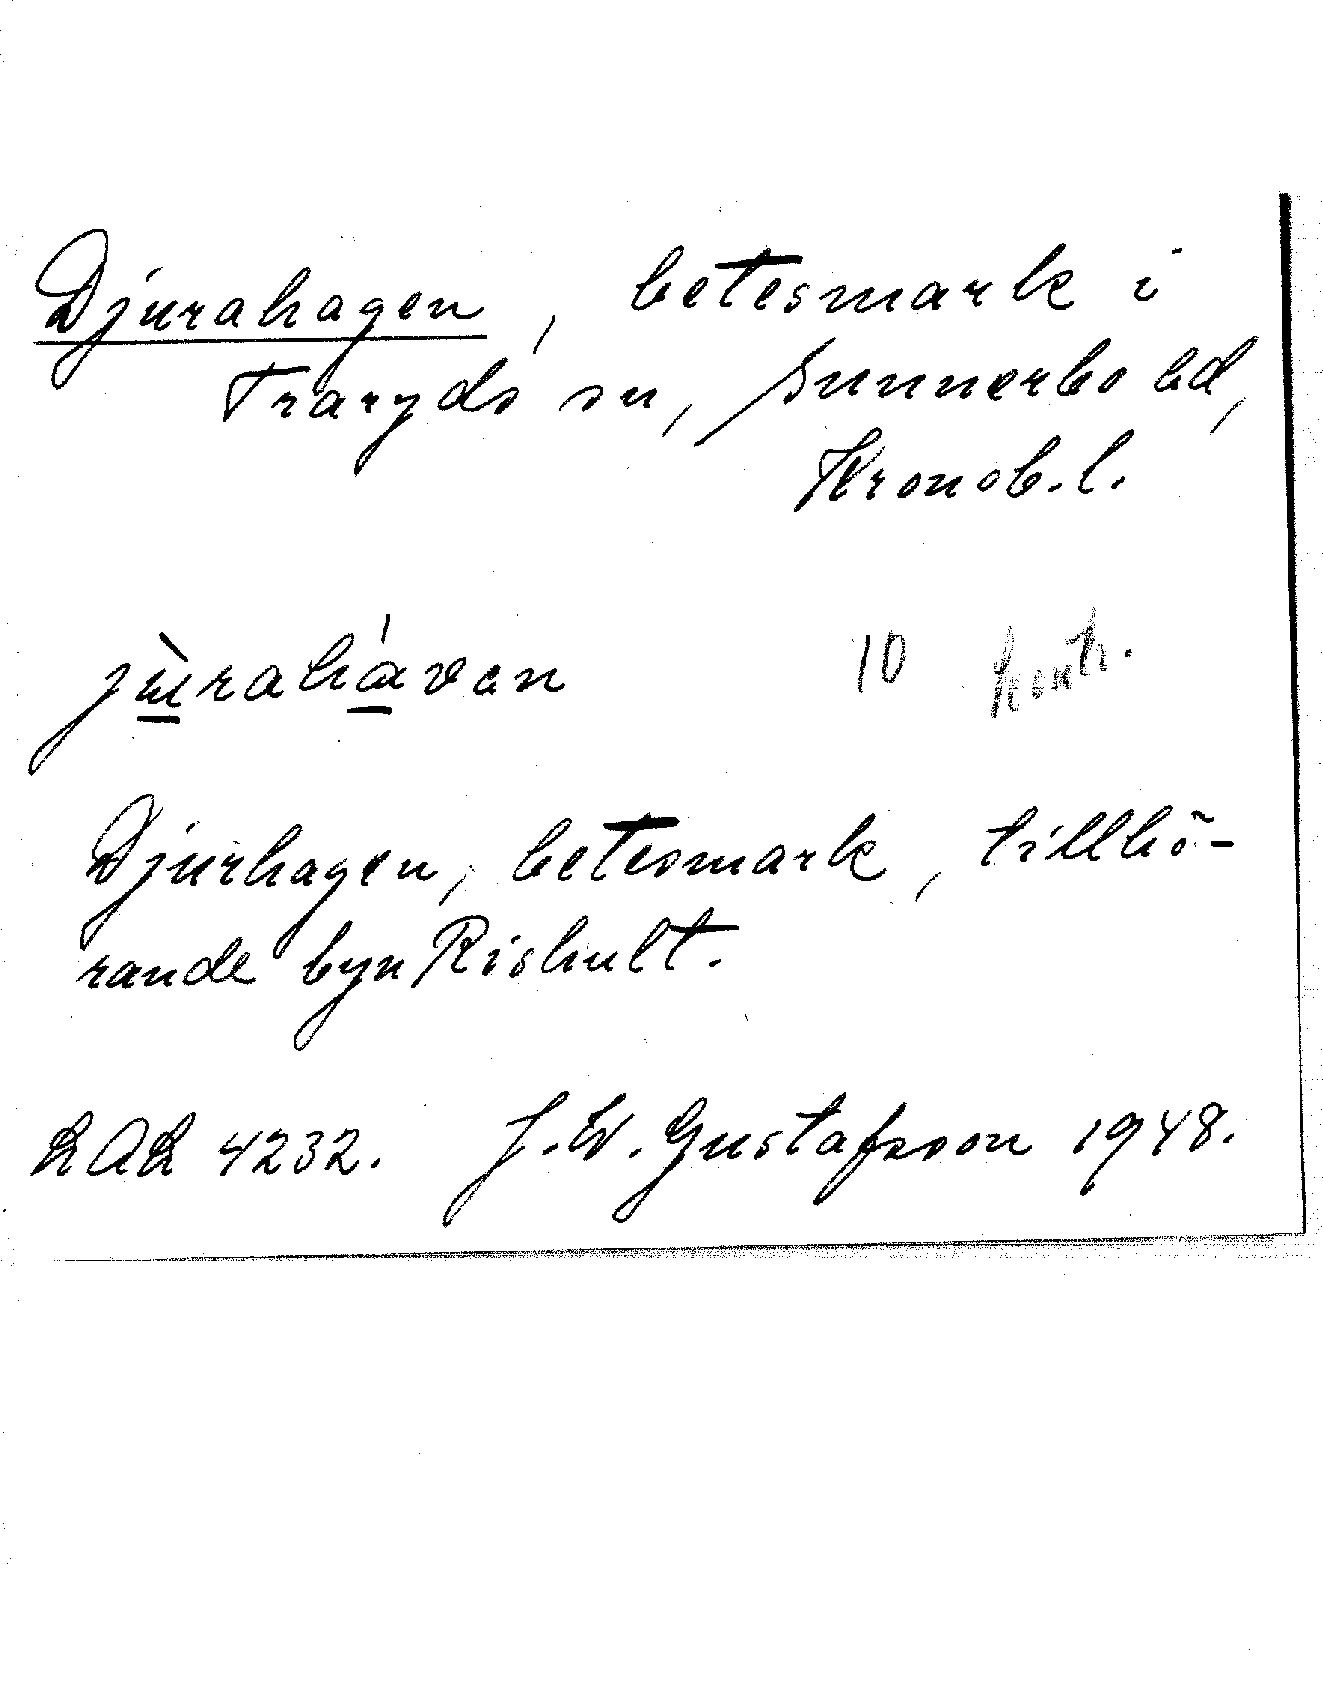 Djurahagen, betesmark i
Traryds sn, Sunnerbo hd,
Kronob. l.
jùrahávən 10 Kontr.
Djurhagen, betesmark, tillhö-
rande byn Rishult.
RAÄ 4232. J. W. Gustafsson 1948.